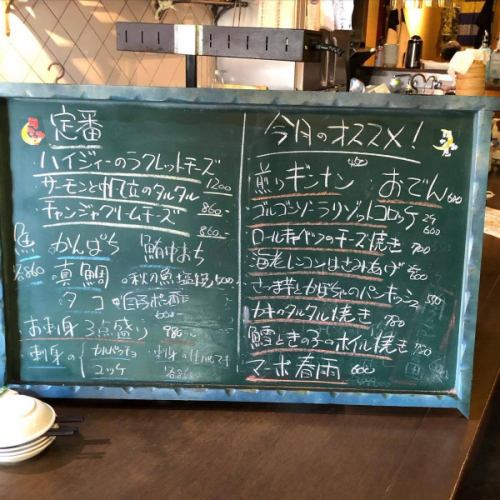 定番
ハイジィーのラクレットチーズ
サーモンと帆立のタルタル 1200
チャンジャクリームチーズ 860-
魚 各860
かんぱち
鮪中おち
真鯛
秋の魚塩焼
タコ
お刺身3点盛り 980-
お刺身の
カルパッチョ
ユッケ
各860
今月のオススメ!
煎りギンナン
おでん 600
ゴルゴンゾーラリゾットコロッケ
600
ロールキャベツのチーズ焼き 700
海老レンコンはさみあげ
さつま芋とかぼちゃのパン
カキのタルタル焼き 780
鱈ときの子のホイル焼き 780
マーボ春雨 600